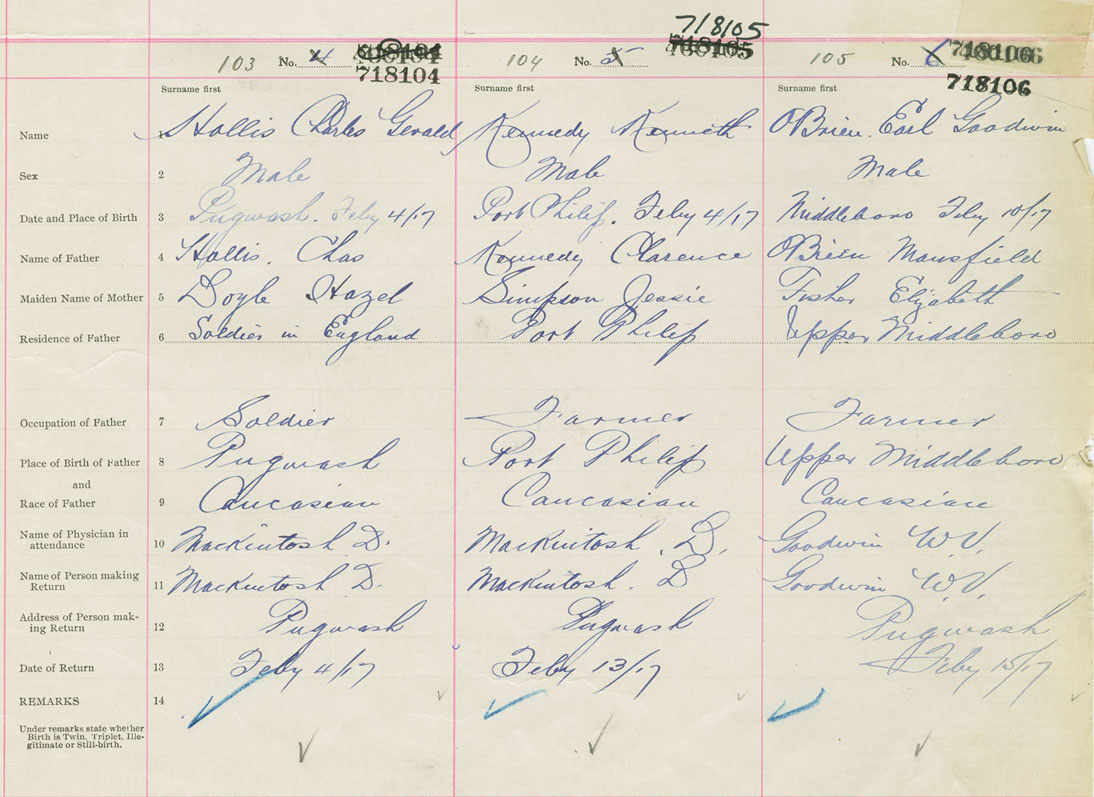 718105
103 No. 4 718104 104 No. 5 718105 105 No. 6 718106
718104 718106
Surname first Surname first Surname first
Name 1 Hollis Charles Gerald Kennedy Kenneth O'Brien. Earl Goodwin
Sex 2 Male Male Male
Date and Place of Birth 3 Pugwash. Feby 4/17 Port Philip. Feby 4/17 Middleboro Feby 10/17
Name of Father 4 Hollis. Chas Kennedy Clarence O'Brien Mansfield
Maiden Name of Mother 5 Doyle Hazel Simpson Jessie Fisher Elizabeth
Residence of Father 6 Soldier in England Port Philip Upper Middleboro
Occupation of Father 7 Soldier Farmer Farmer
Place of Birth of Father 8 Pugwash Port Philip Upper Middleboro
and
Race of Father 9 Caucasian Caucasian Caucasian
Name of Physician in
attendance 10 Mackintosh D. Mackintosh. D. Goodwin W.V.
Name of Person making
Return 11 Mackintosh D. Mackintosh. D Goodwin W.V.
Address of Person mak-
ing Return 12 Pugwash Pugwash Pugwash
Date of Return 13 Feby 4/17 Feby 13/17 Feby 15/17
REMARKS 14
Under remarks state whether
Birth is Twin, Triplet, Ille-
gitimate or Still-birth.